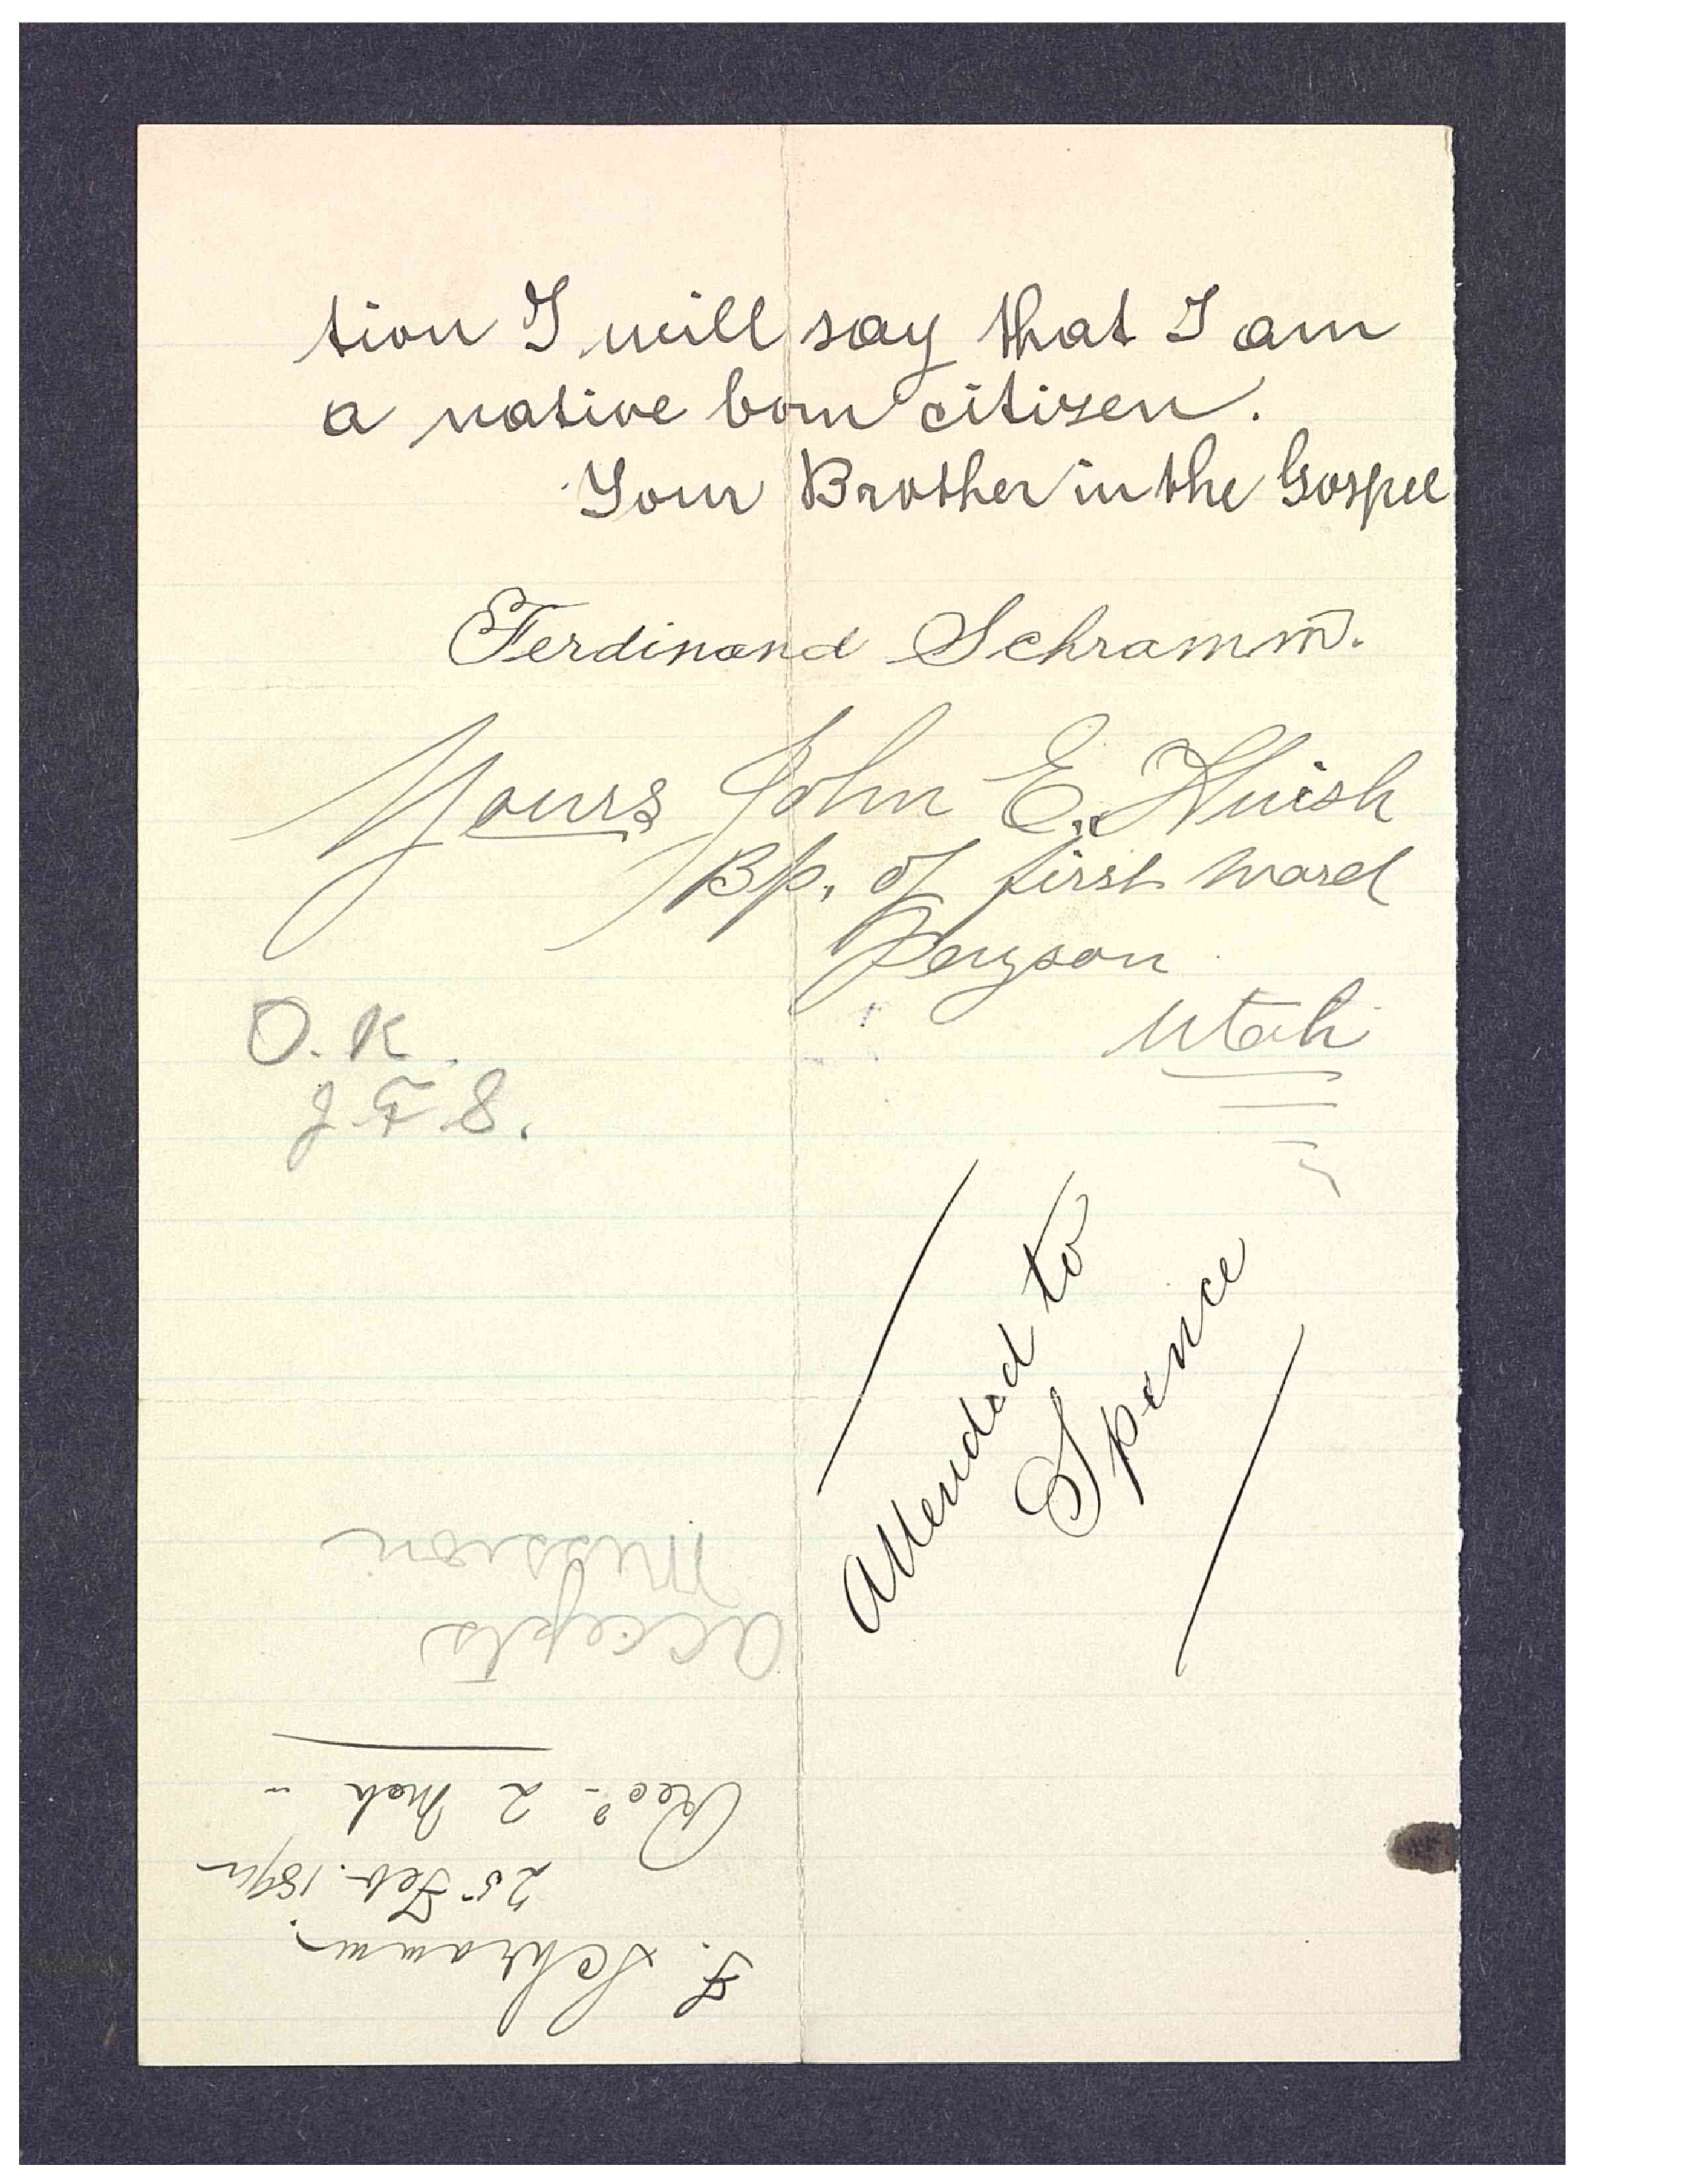 tion I will say that I am
a native born citizen.
Your Brother in the Gospel
Ferdinand Schramm.
Yours John E. Huish
Bp. of first ward
Payson
Utah
O.K.
J F S.
Attended to
Spence
F. Schramm.
25 Feb. 189
Recd. 2 Mch "
Accepts
Mission